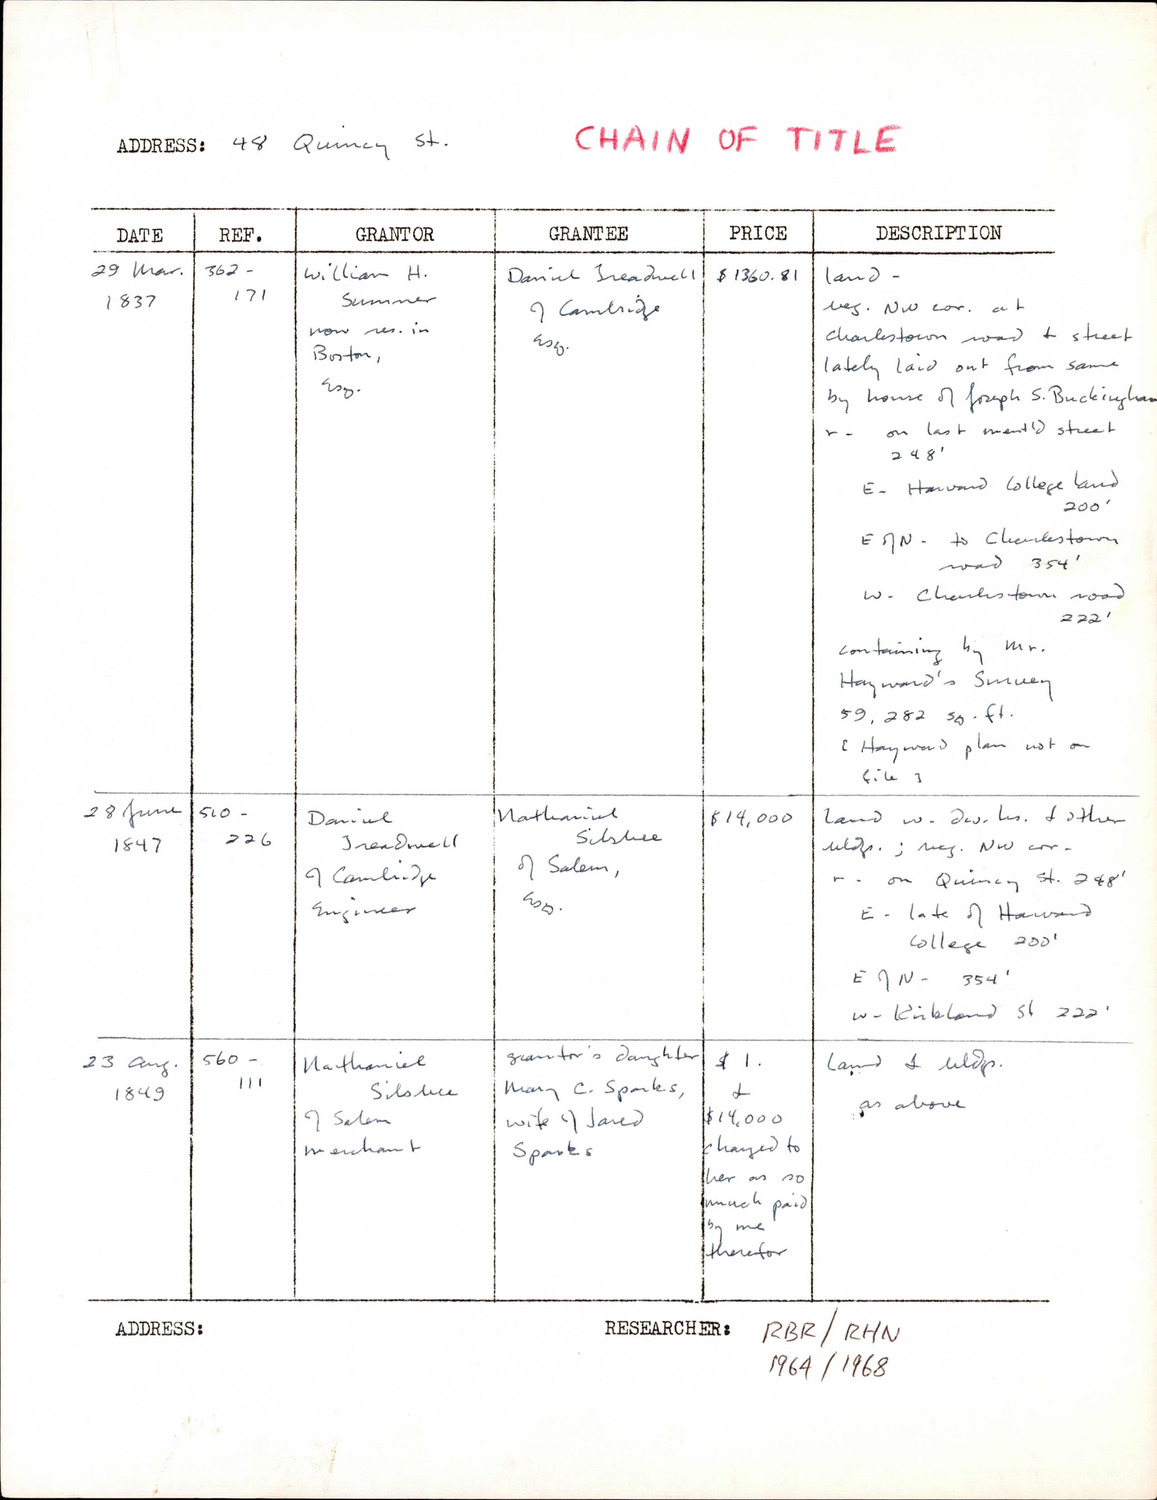 ADDRESS: 48 Quincy St.
CHAIN OF TITLE
DATE REF. GRANTOR GRANTEE PRICE DESCRIPTION
29 Mar.
1837
362-
171
William H.
Sumner
now res. in
Boston,
Esq.
Daniel Treadwell
of Cambridge
Esq.
$1360.81
land -
beg. NW cor. at
Charlestown road & street
lately laid out from same
by house of Joseph S. Buckingham
r - on last ment'd street
248'
E - Harvard College land
200'
E of N - to Charlestown
road 354'
W - Charlestown road
222'
containing by Mr.
Hayward's Survey
59,282 sq. ft.
[Hayward plan not on
file]
28 June
1847
510-
226
Daniel
Treadwell
of Cambridge
Engineer
Nathaniel
Silsbee
of Salem,
Esq.
$14,000
land w. dw. hs. & other
bldgs.; beg. NW cor-
r - on Quincy St. 248'
E - late of Harvard
College 200'
E of N - 354'
W - Kirkland St 222'
23 Aug.
1849
560-
111
Nathaniel
Silsbee
of Salem
merchant
grantor's daughter
Mary C. Sparks,
wife of Jared
Sparks
$1.
&
$14,000
charged to
her as so
much paid
by me
therefor
land & bldgs.
as above
ADDRESS:
RESEARCHER: RBR/RHN
1964/1968